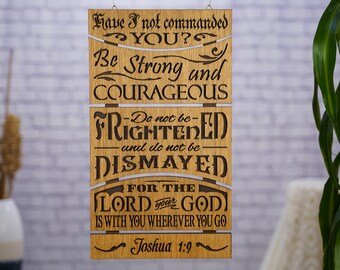 Have I not commanded
YOU?
Be Strong and
COURAGEOUS
Do not be
FRIGHTENED
and do not be
DISMAYED
FOR THE
LORD your GOD
IS WITH YOU WHEREVER YOU GO
Joshua 1:9